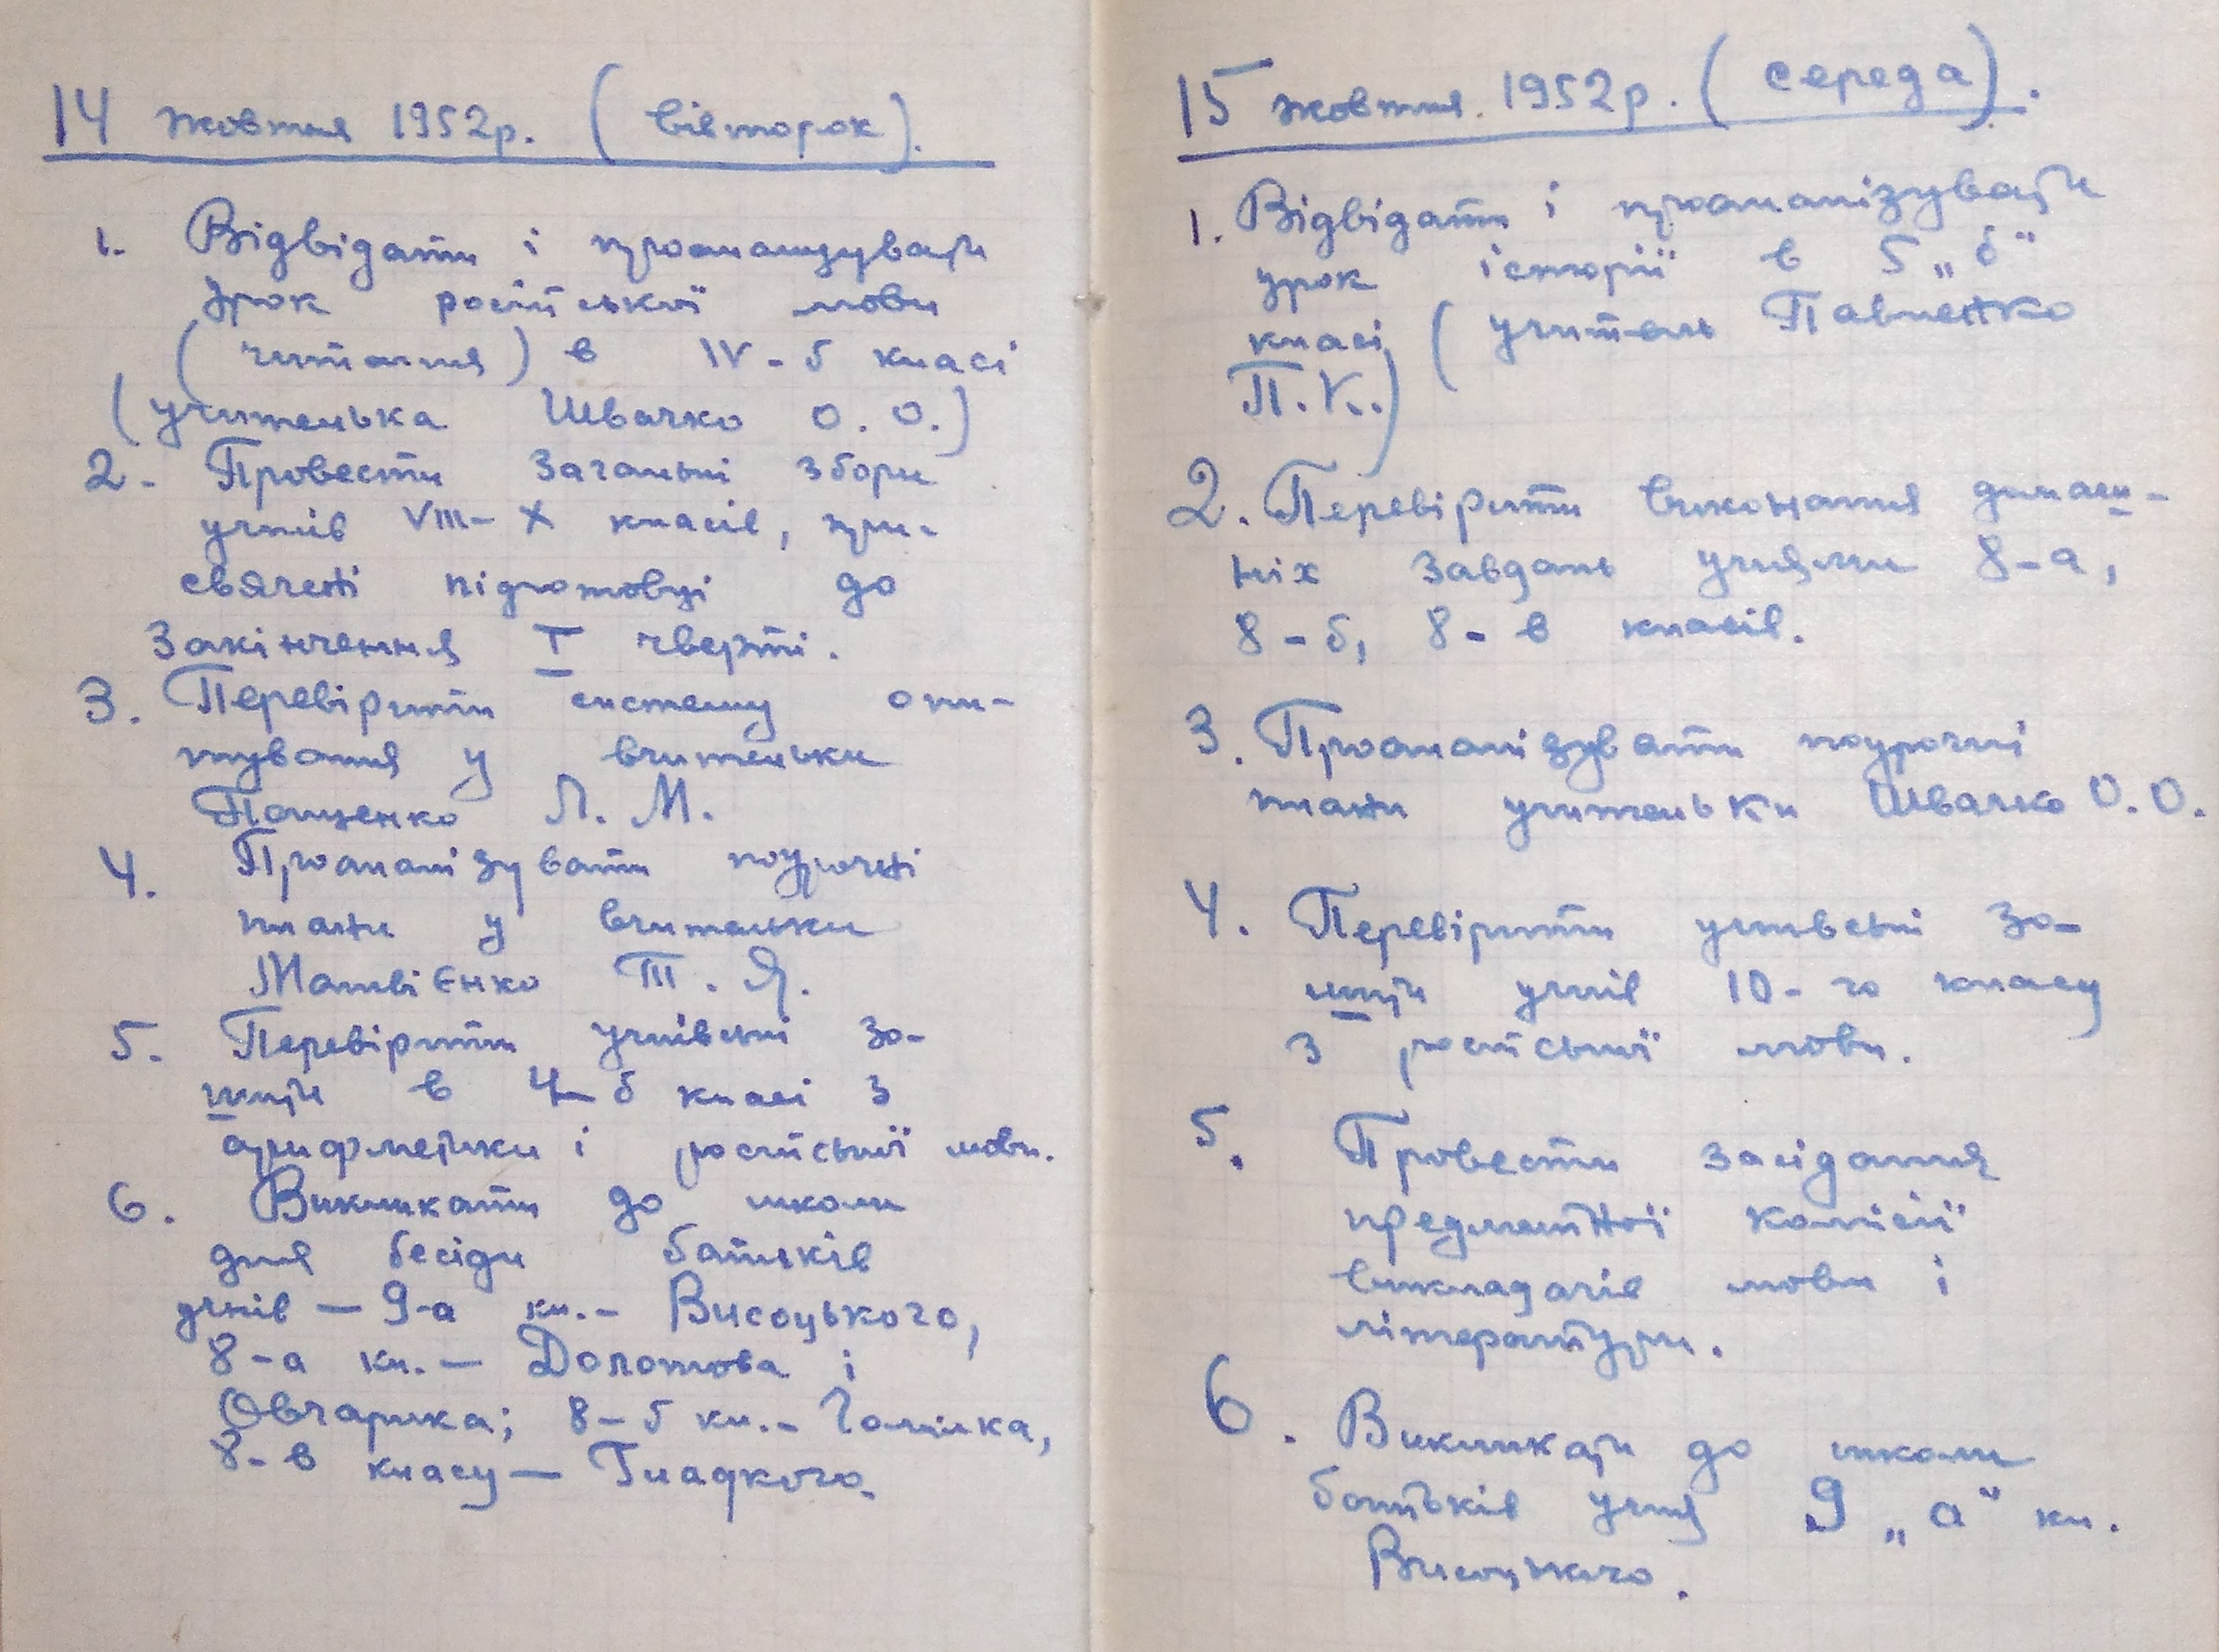 14 жовтня 1952р. (вівторок).
1. Відвідати і проаналізувати
урок російської мови
(читання) в IV-б класі
(учителька Швачко О. О.)
2. Провести загальні збори
учнів VIII-X класів, при-
свячені підготовці до
закінчення I чверті.
3. Перевірити систему опи-
тування у вчительки
Пащенко Л. М.
4. Проаналізувати поурочні
плани у вчительки
Матвієнко Т. Я.
5. Перевірити учнівські зо-
шити в 4-б класі з
арифметики і російської мови.
6. Викликати до школи
для бесіди батьків
учнів — 9-а кл.- Висоцького,
8-а кл.— Долотова і
Овчарика; 8-б кл.-
8-в класу — Гладкого.
15 жовтня. 1952р. (середа).
1. Відвідати і проаналізувати
урок історії в 5 „б"
класі (учитель Павленко
П.К.)
2. Перевірити виконання домаш-
ніх завдань учнями 8-а,
8-б, 8-в класів.
3. Проаналізувати поурочні
плани учительки Швачко О.О.
4. Перевірити учнівські зо-
шити учнів 10-го класу
з російської мови.
5. Провести засідання
предметної комісії
викладачів мови і
літератури.
6. Викликати до школи
батьків учня 9 „а" кл.
Висоцького.